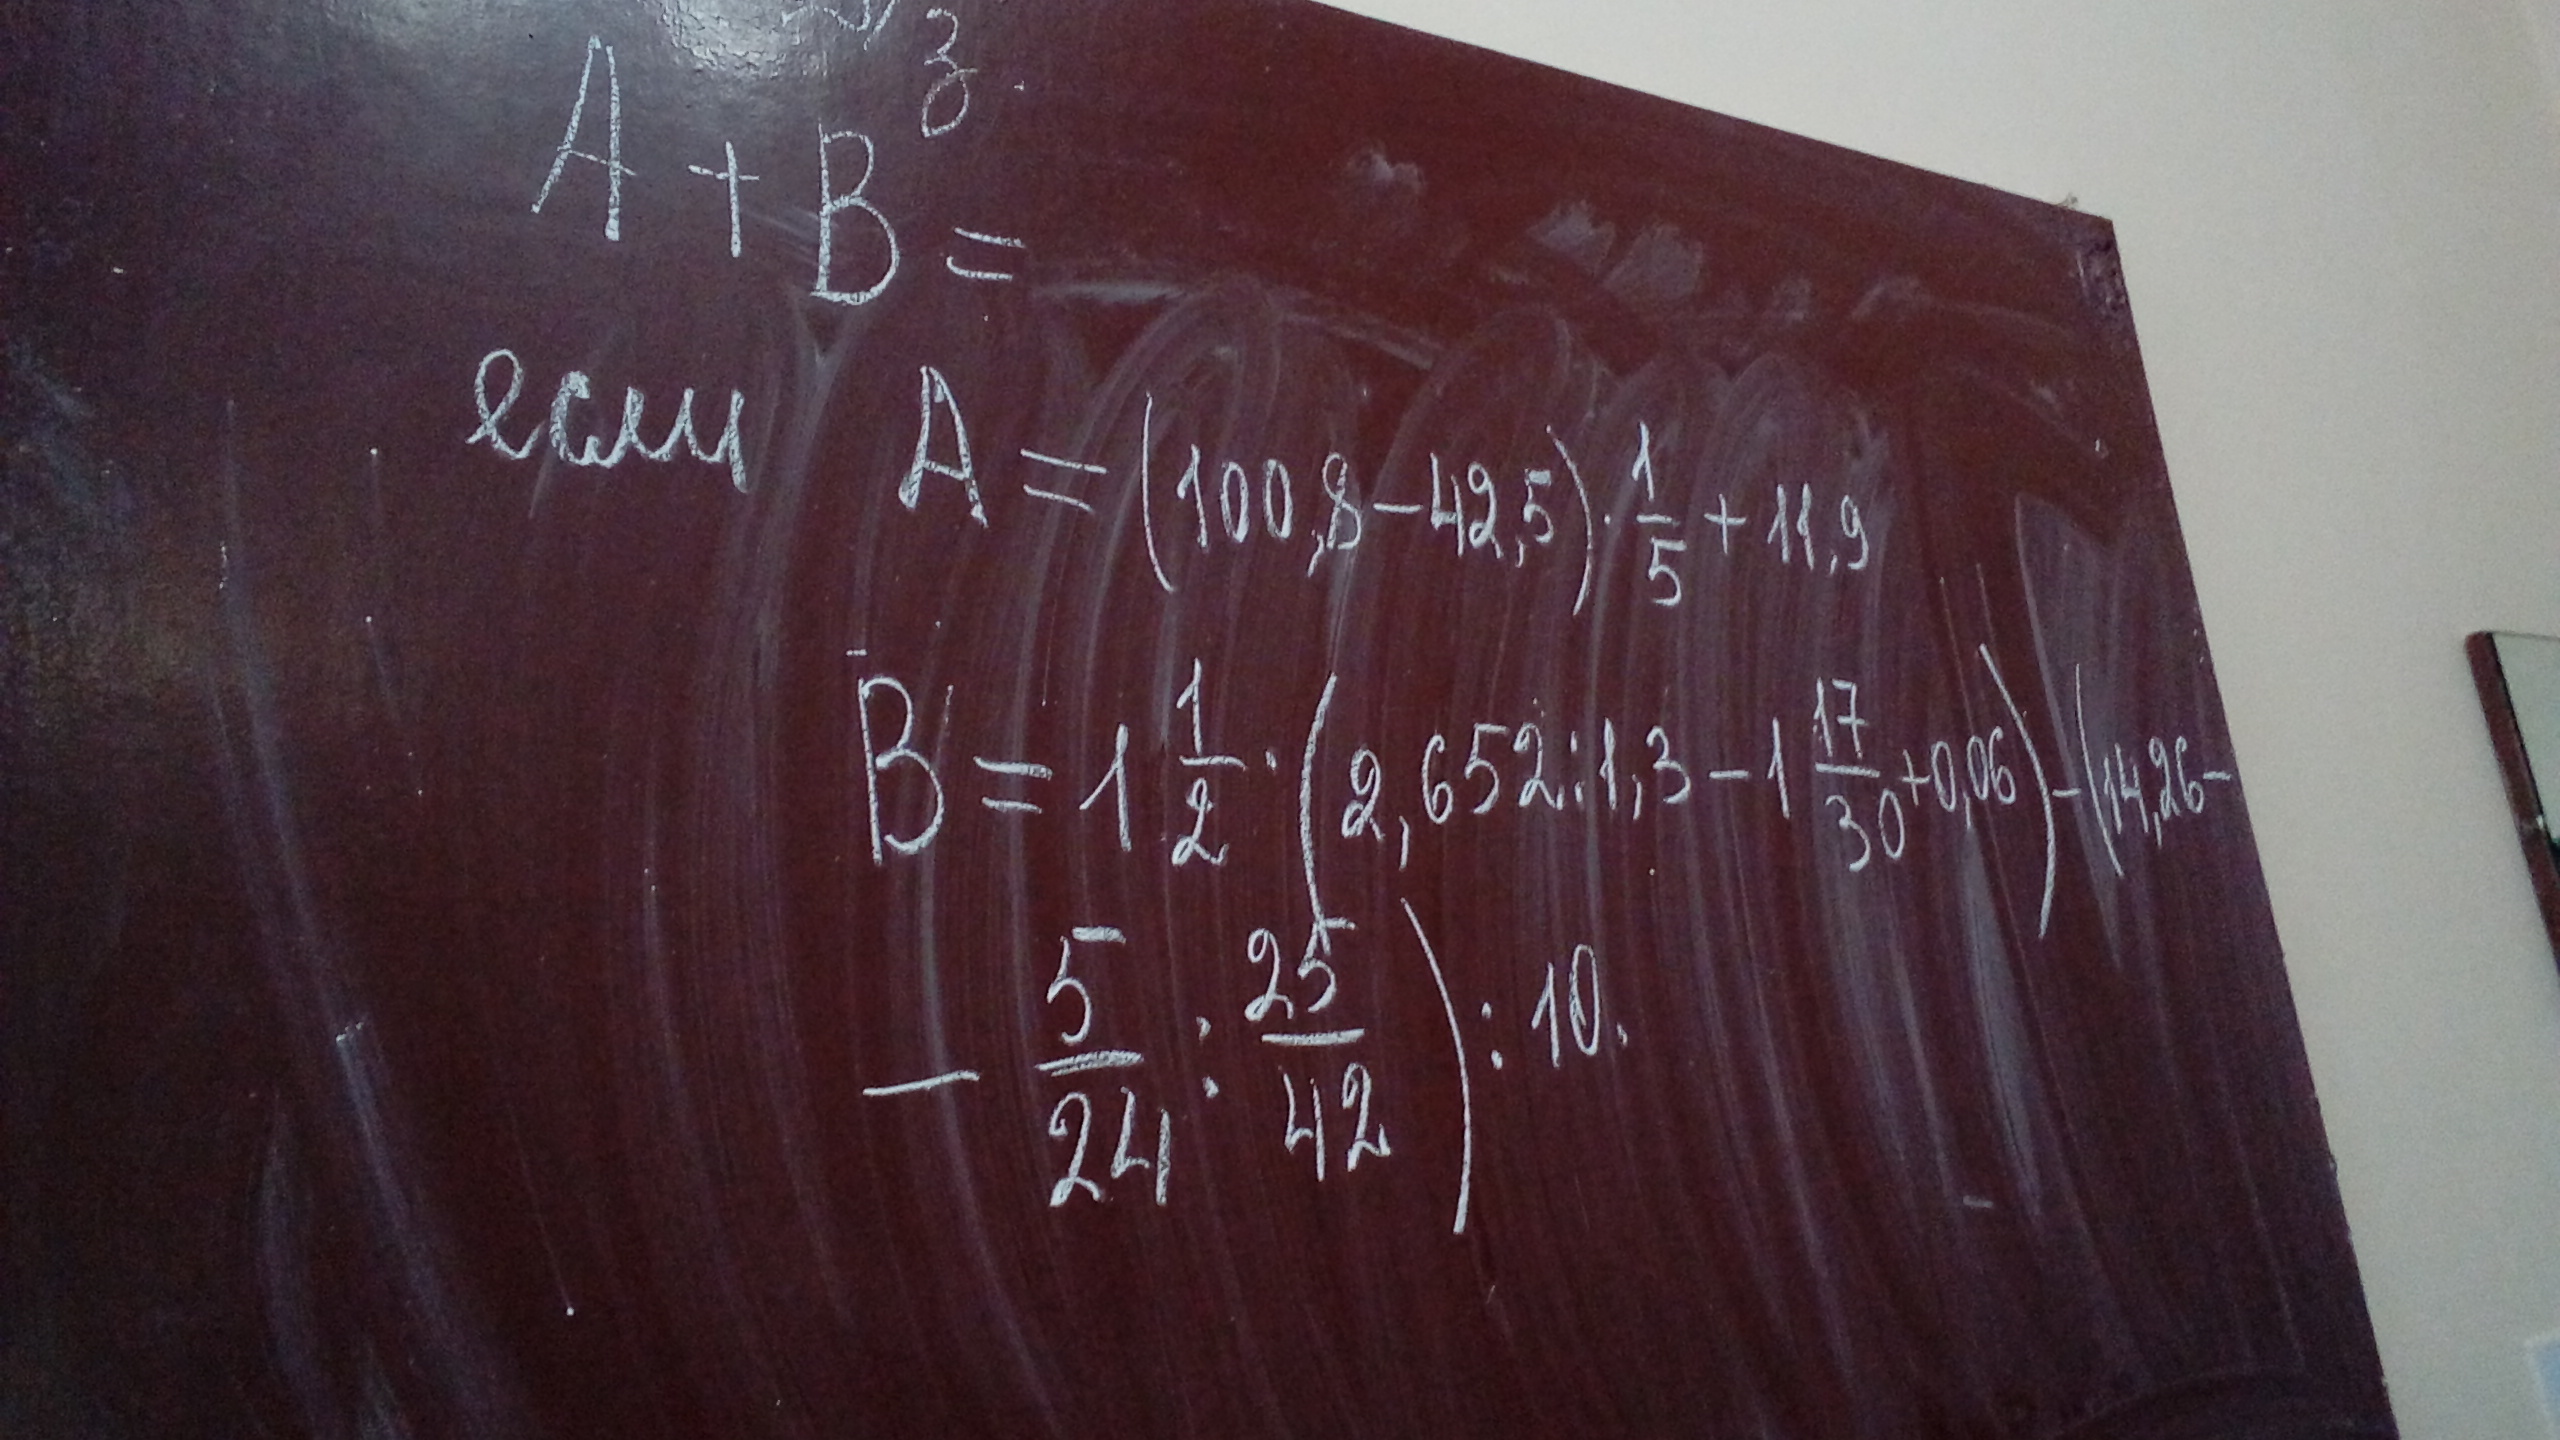 A + B =
если A = (100,8 - 42,5) · 1/5 + 11,9
B = 1 1/2 · (2,652 : 1,3 - 1 17/30 + 0,06) - (14,26 -
- 5/24 : 25/42) : 10.